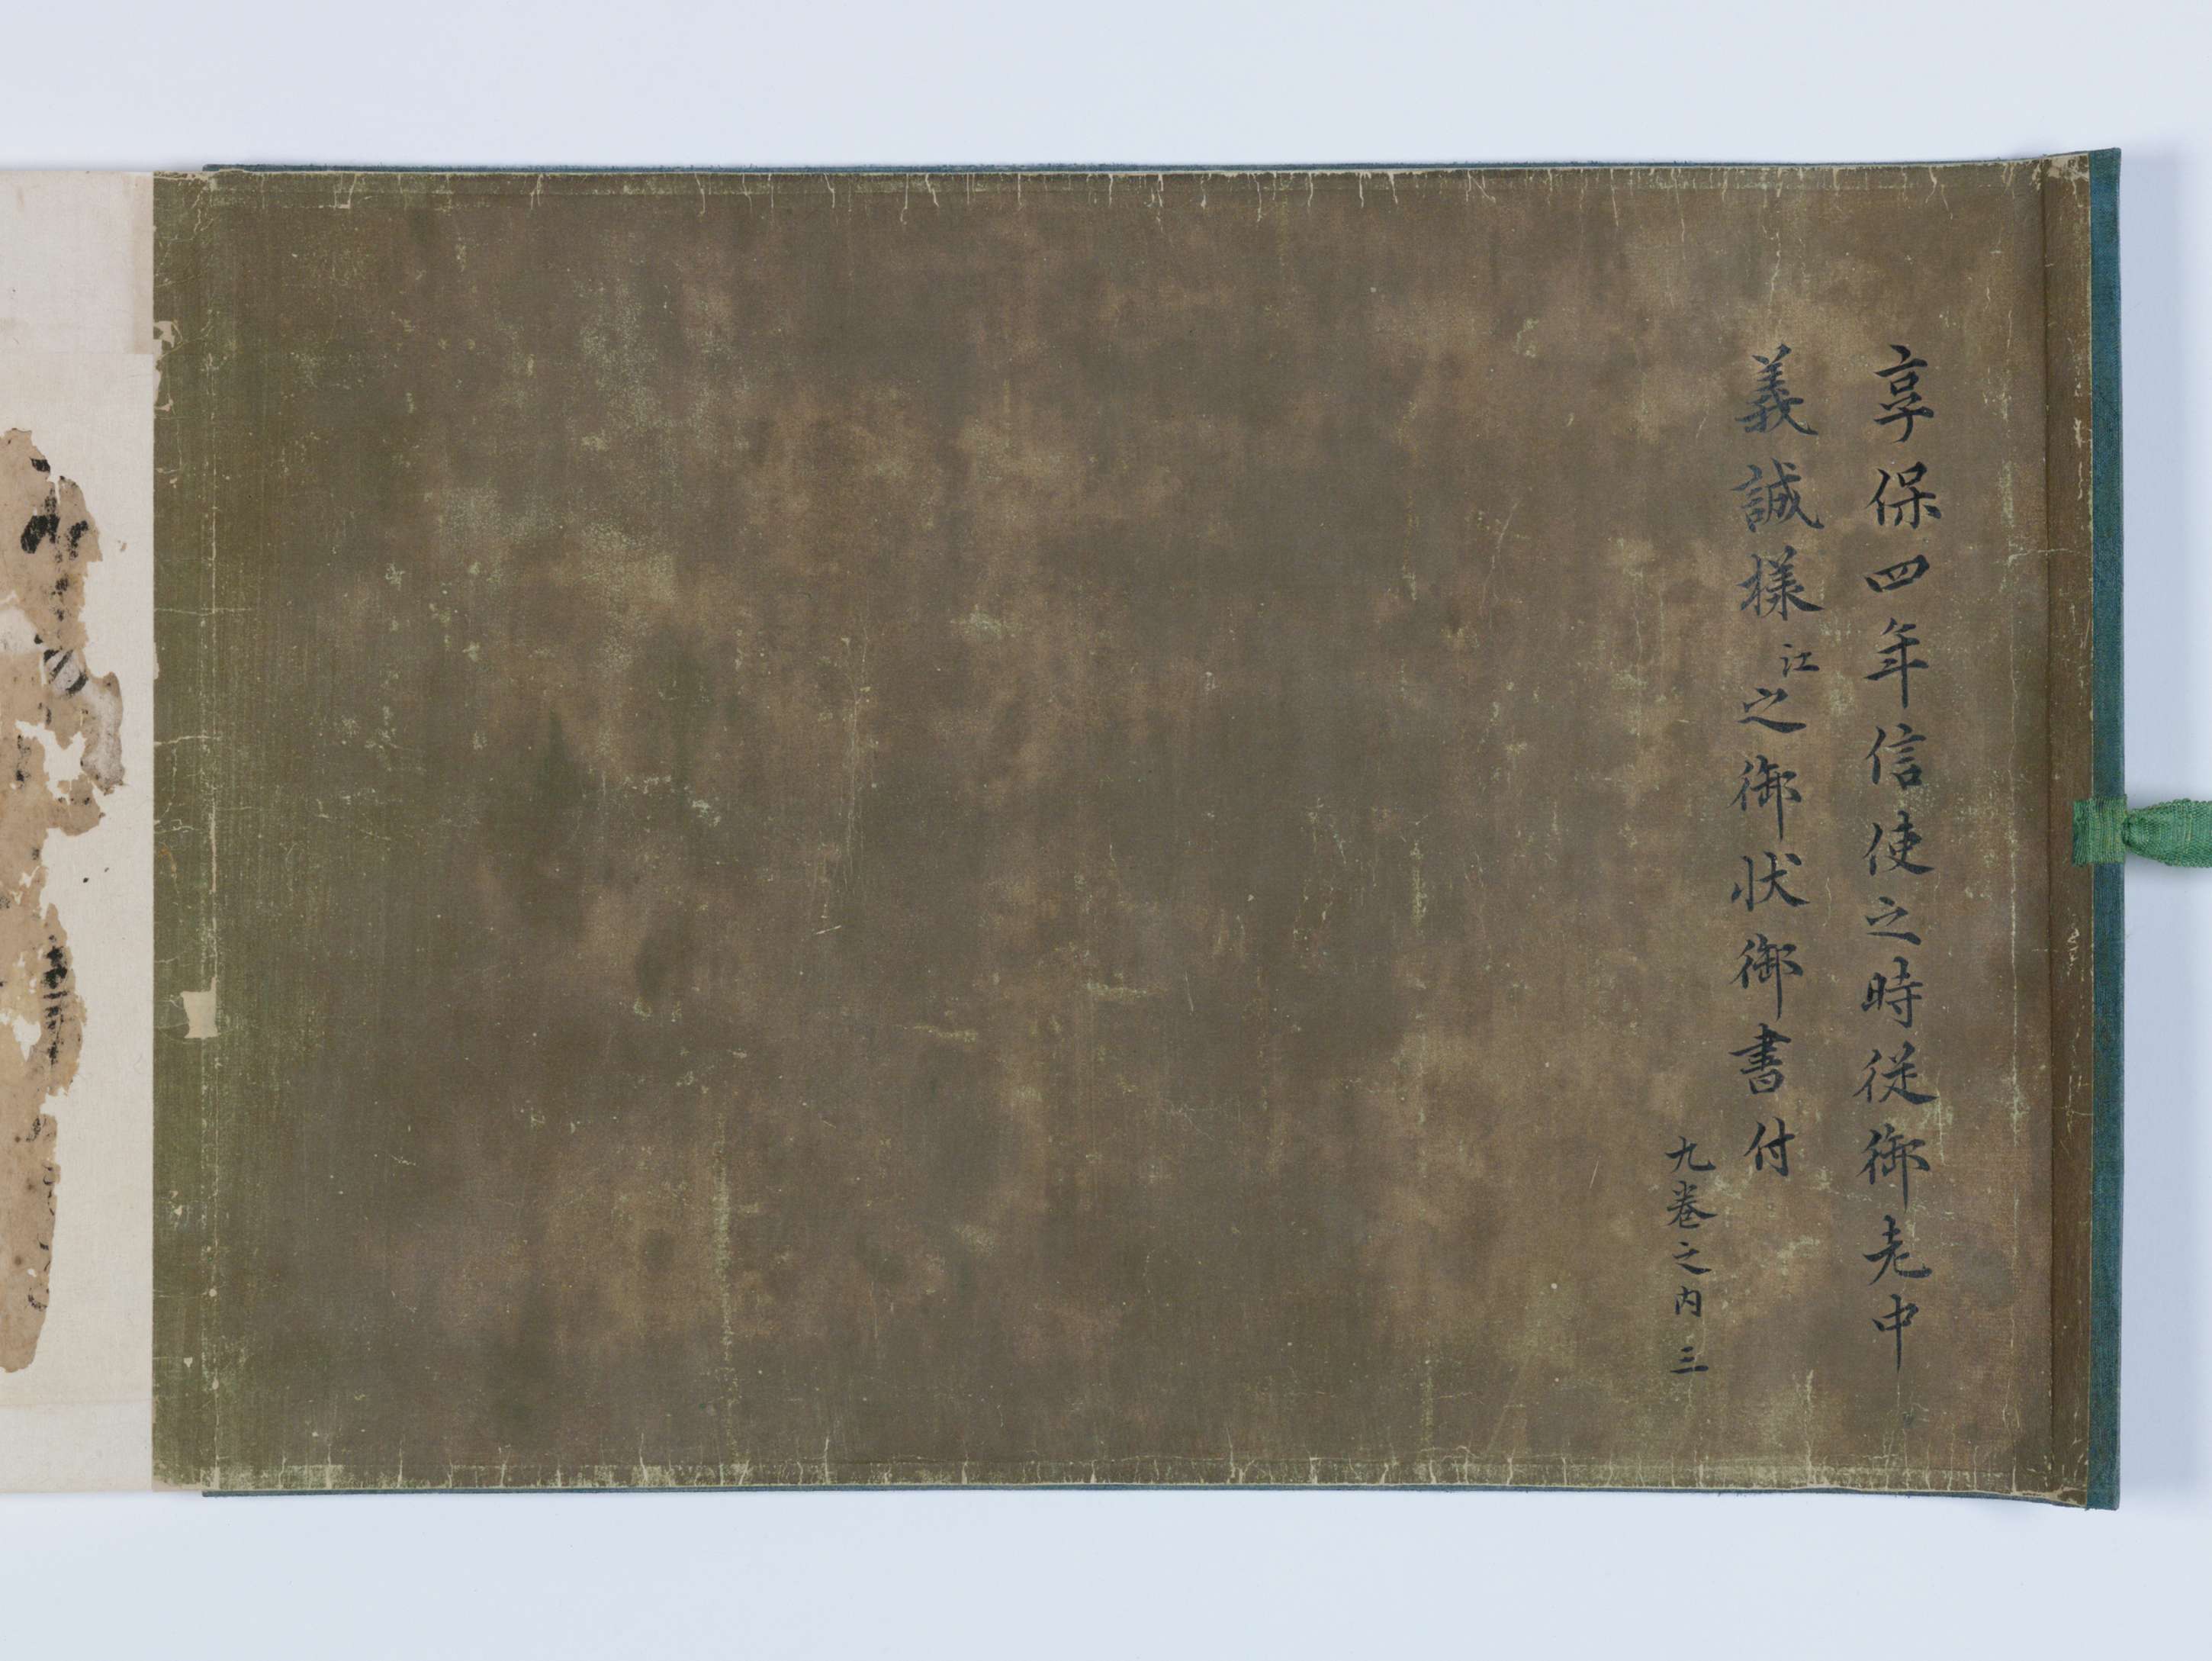 享保四年信使之時従御老中
義誠様江之御状御書付
九巻之内三